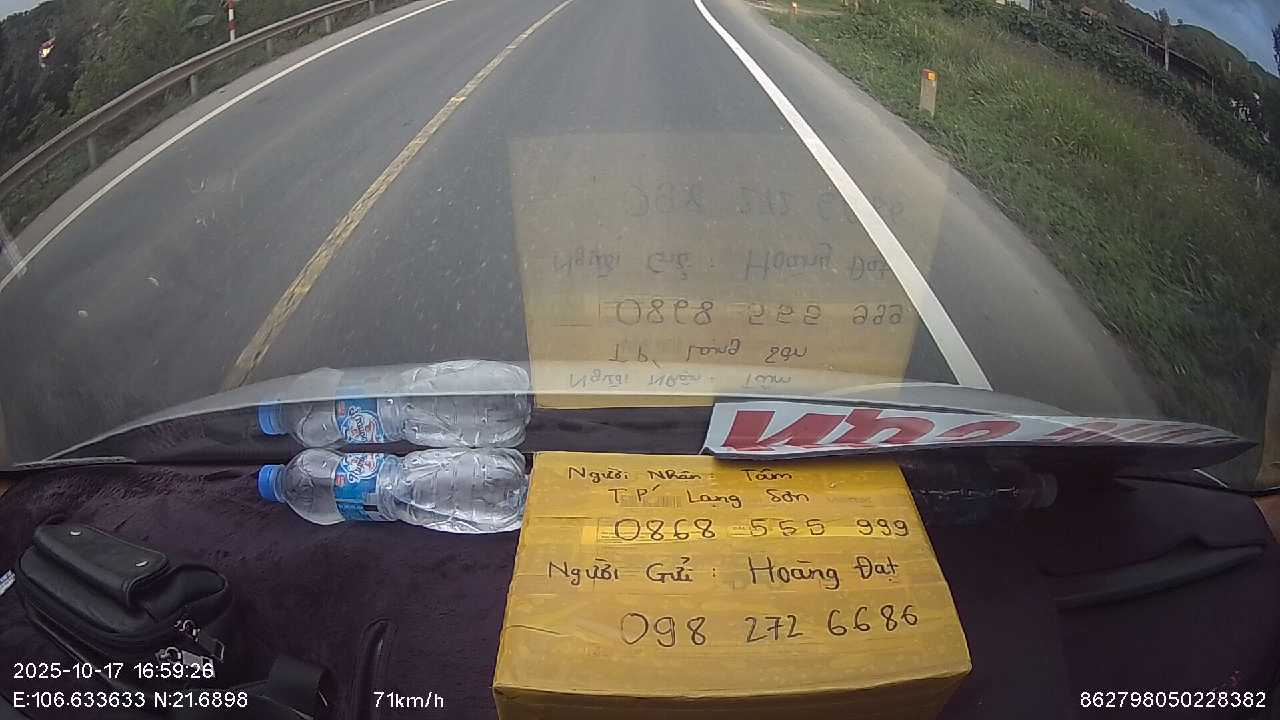 Người Nhân: Tâm
T.P Lạng Sơn
0868 555 999
Người Gửi : Hoàng Đạt
098 272 6686
2025-10-17 16:59:26
E:106.633633 N:21.6898 71km/h 862798050228382